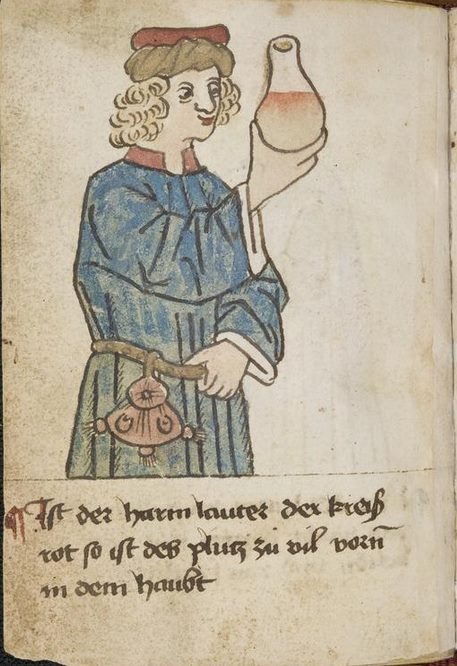 ¶ Ist der harm lauter der kreiß
rot so ist deß plutz zu vil vorn̄
in dem haubt